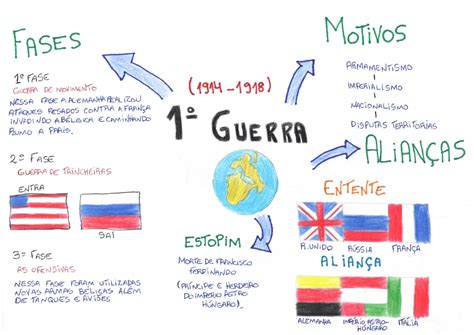 FASES
1ª FASE
GUERRA DE MOVIMENTO
NESSA FASE A ALEMANHA REALIZOU
ATAQUES PESADOS CONTRA A FRANÇA
INVADINDO A BÉLGICA E CAMINHANDO
RUMO A PARIS.
2ª FASE
GUERRA DE TRINCHEIRAS
ENTRA
SAI
3ª FASE
AS OFENSIVAS
NESSA FASE FORAM UTILIZADAS
NOVAS ARMAS BÉLICAS ALÉM
DE TANQUES E AVIÕES
(1914-1918)
1ª GUERRA
ESTOPIM
MORTE DE FRANCISCO
FERDINANDO
(PRÍNCIPE E HERDEIRO
DO IMPÉRIO AUSTRO
HÚNGARO).
MOTIVOS
ARMAMENTISMO
IMPERIALISMO
NACIONALISMO
DISPUTAS TERRITORIAIS
ALIANÇAS
ENTENTE
R.UNIDO
RÚSSIA
FRANÇA
ALIANÇA
ALEMANHA
IMPÉRIO AUSTRO-
HÚNGARO
ITÁLIA